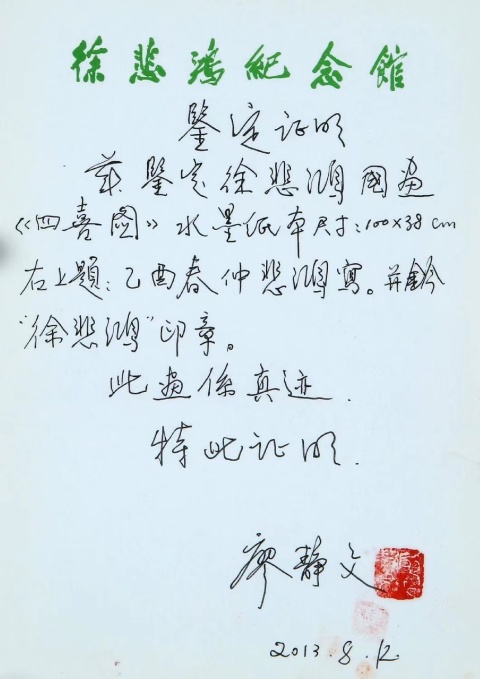 徐悲鴻紀念館
鑒定证明
茲鑒定徐悲鴻國畫
《四喜圖》水墨纸本尺寸:100×38cm
右上題:乙酉春仲悲鴻寫。并鈐
“徐悲鴻”印章。
此畫係真迹.
特此证明.
廖静文
2013.8.12.